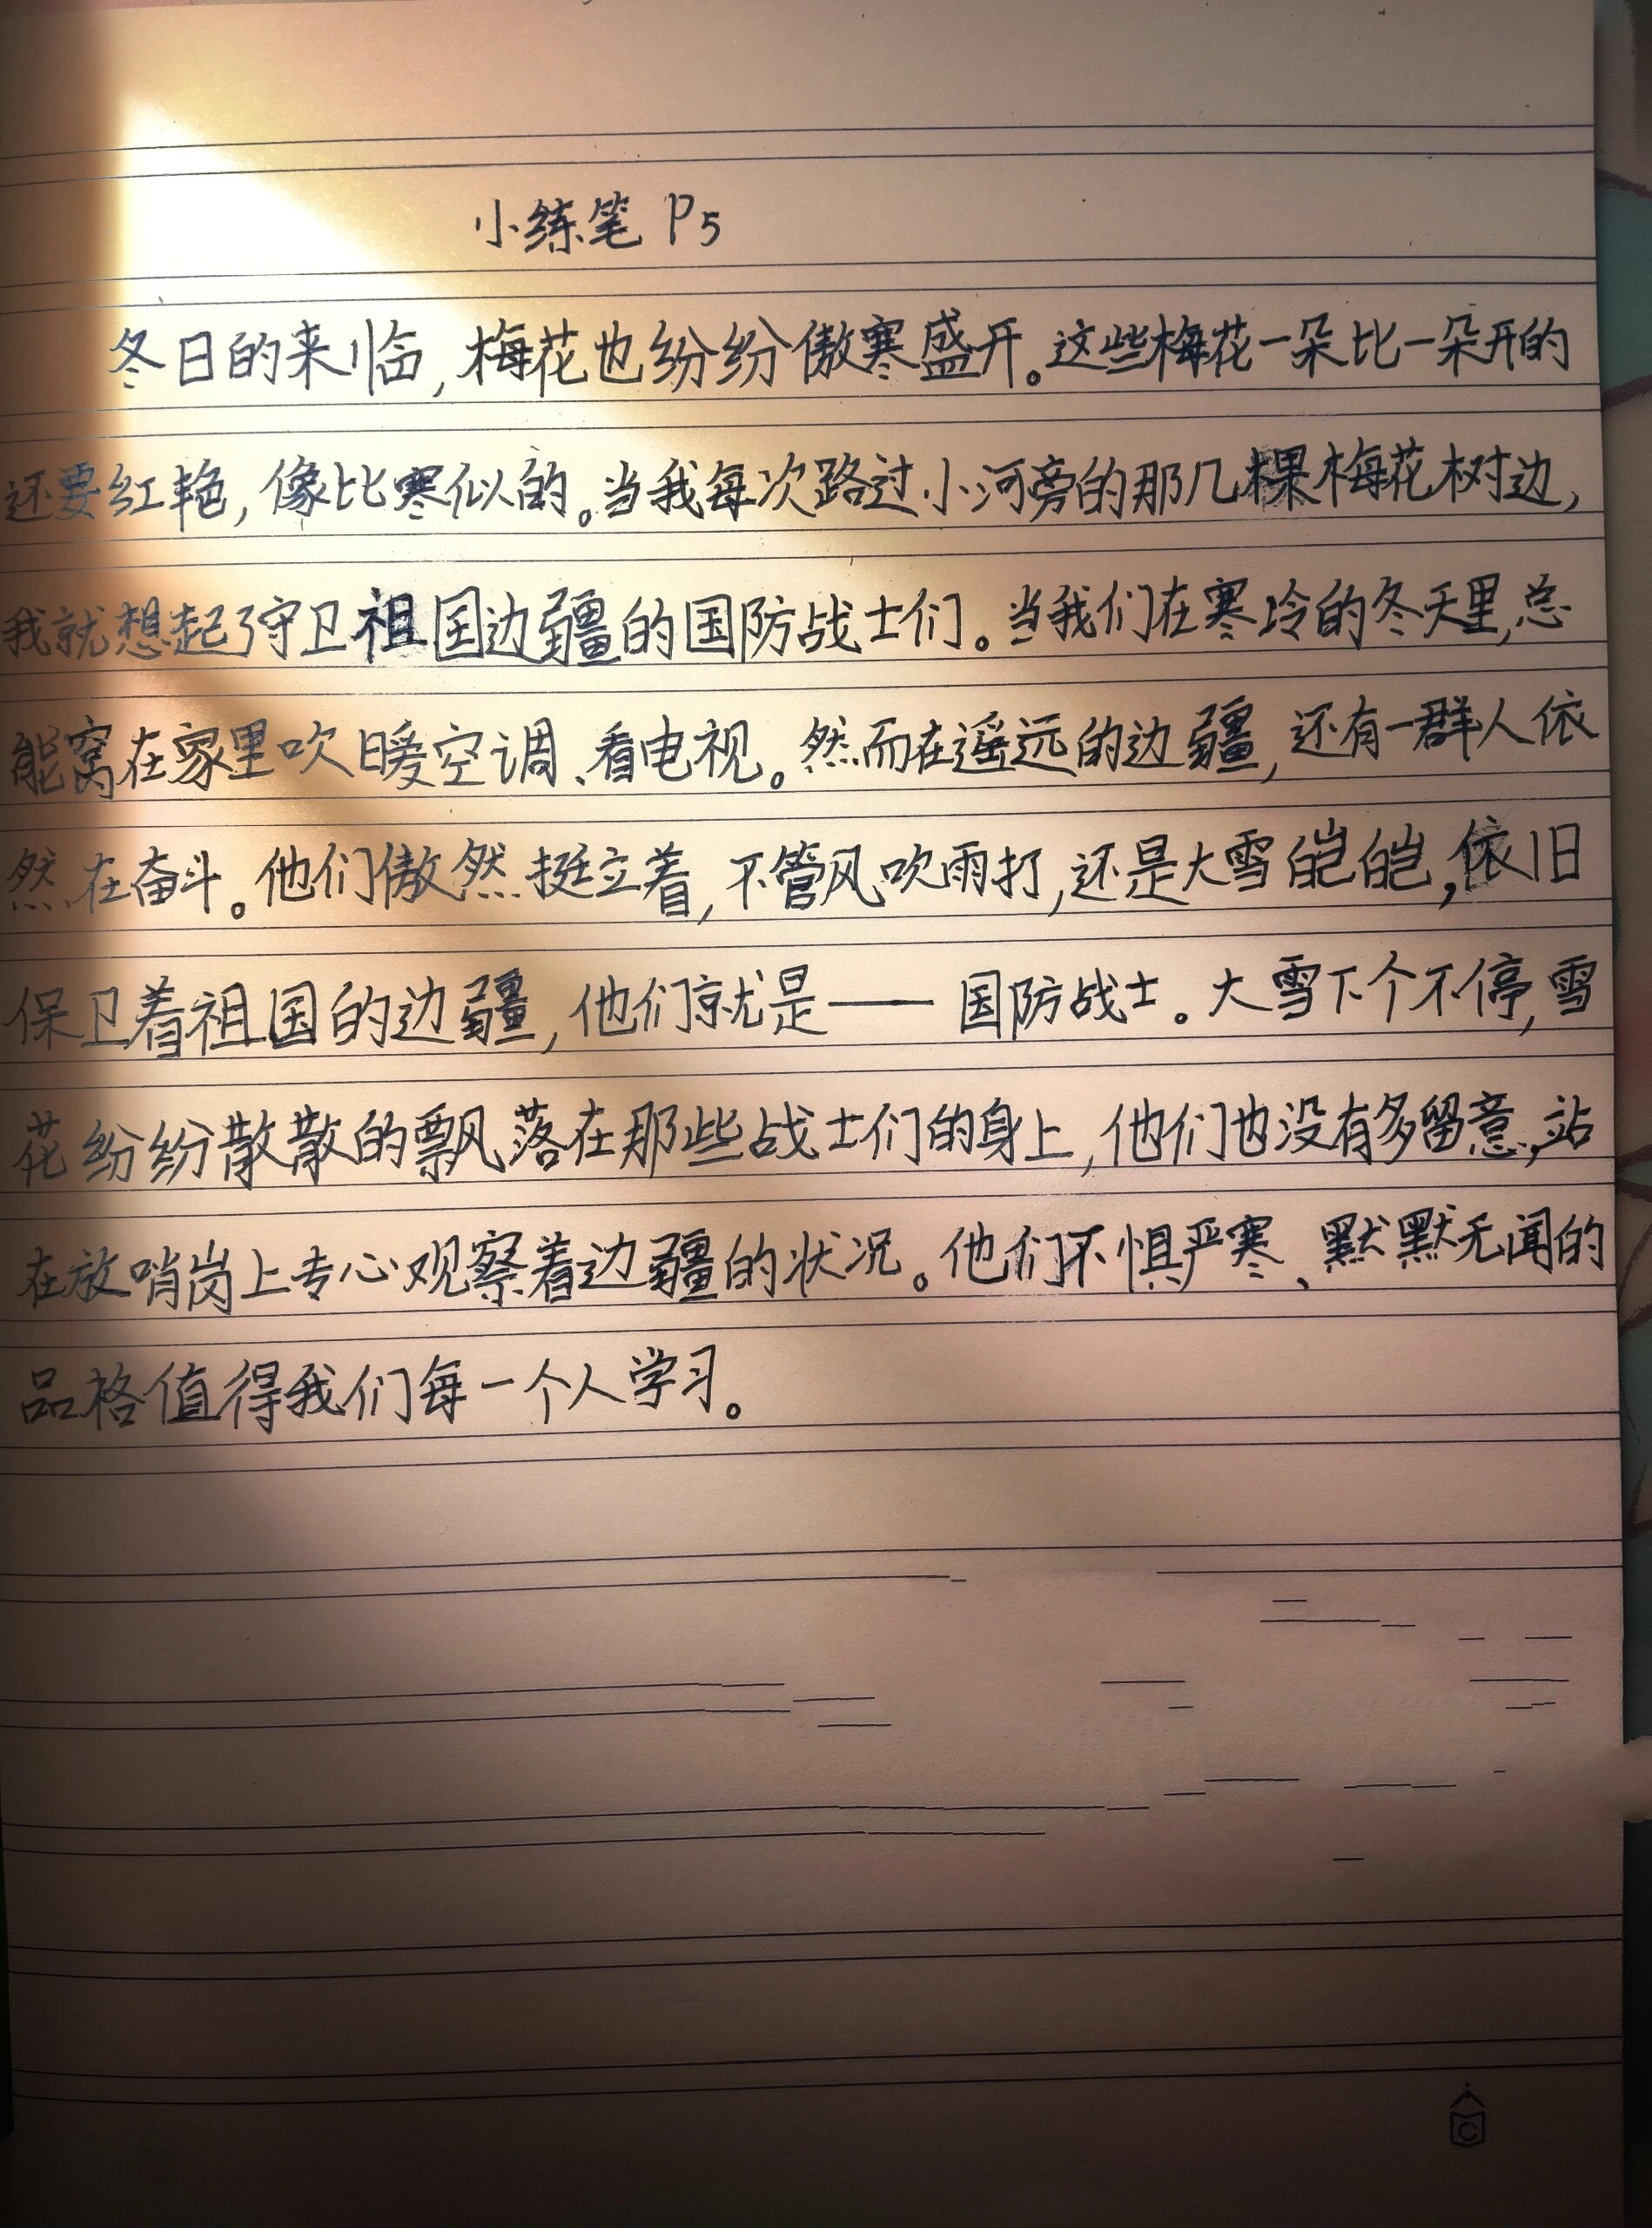 小练笔 P5
冬日的来临,梅花也纷纷傲寒盛开。这些梅花一朵比一朵开的
还要红艳,像比寒似的。当我每次路过小河旁的那几棵梅花树边,
我就想起了守卫祖国边疆的国防战士们。当我们在寒冷的冬天里,总
能窝在家里吹暖空调、看电视。然而在遥远的边疆,还有一群人依
然在奋斗。他们傲然挺立着,不管风吹雨打,还是大雪皑皑,依旧
保卫着祖国的边疆,他们就是——国防战士。大雪下个不停,雪
花纷纷散散的飘落在那些战士们的身上,他们也没有多留意,站
在放哨岗上专心观察着边疆的状况。他们不惧严寒、默默无闻的
品格值得我们每一个人学习。
C